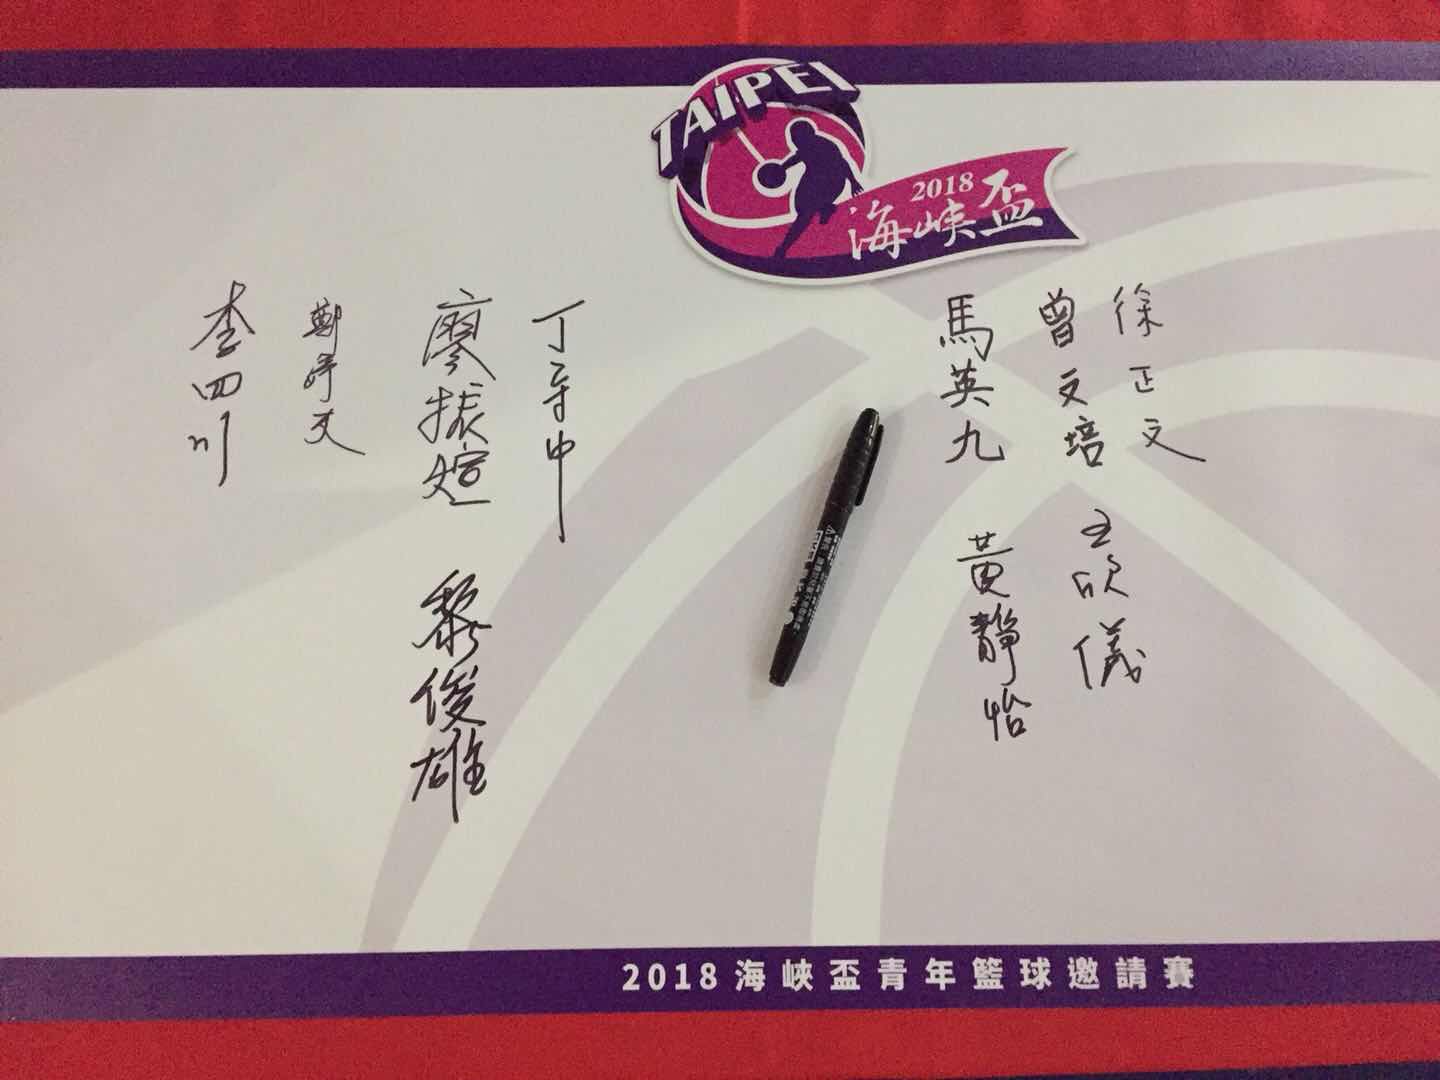 TAIPEI
2018
海峽盃
徐正文
曾文培
馬英九
王欣儀
黃靜怡
丁守中
廖振煊
黎俊雄
李四川
2018海峽盃青年籃球邀請賽